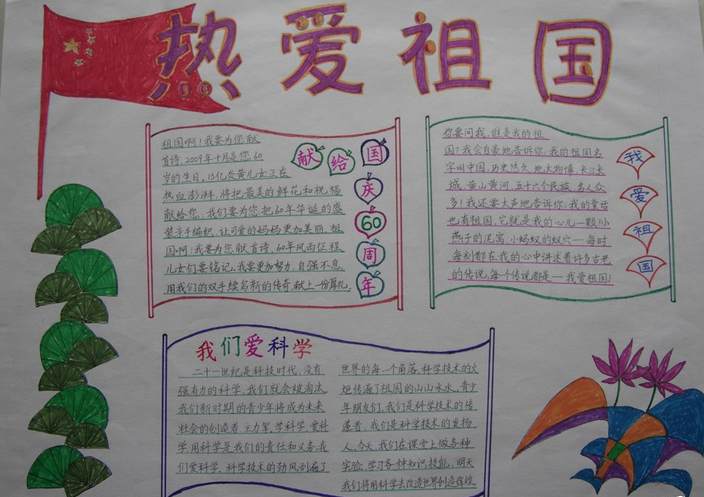 热爱祖国
献给国庆60周年
祖国啊!我要为您献
首诗,2009年十月是您60
岁的生日,13亿炎黄儿女正在
热血澎湃,将把最美的鲜花和祝福
献给您;我们要为您把60年华诞的盛
装亲手编织,让可爱的妈妈更加美丽,祖
国啊!我要为您献首诗,60年风雨征程
儿女们要铭记,我要更加努力,自强不息
用我们的双手续写新的传奇,献上一份厚礼,
我爱祖国
你要问我,谁是我的祖
国?我会自豪地告诉你,我的祖国名
字叫中国,历史悠久,地大物博,长江长
城,黄山黄河,五十六个民族,名人众
多!我还要大声地告诉你,我的童贞
也有祖国,它就是我的心儿一颗!小
燕子的泥窝,小蚂蚁的蚁穴……每时
每刻都在我的心中讲述着许多古老
的传说,每个传说都是——我爱祖国!
我们爱科学
二十一世纪是科技时代,没有
强有力的科学,我们就会被淘汰,
我们新时期的青少年将成为未来
社会的创造者、主力军,学科学、爱科
学、用科学是我们的责任和义务,我
们爱科学,科学技术的劲风刮遍了
世界的每一个角落,科学技术的火
炬传遍了祖国的山山水水,青少
年朋友们,我们是科学技术的传
播者,我们是科学技术的发扬
人,今天,我们在课堂上做各种
实验,学习各种知识技能,明天
我们将用科学去改造世界创造辉煌